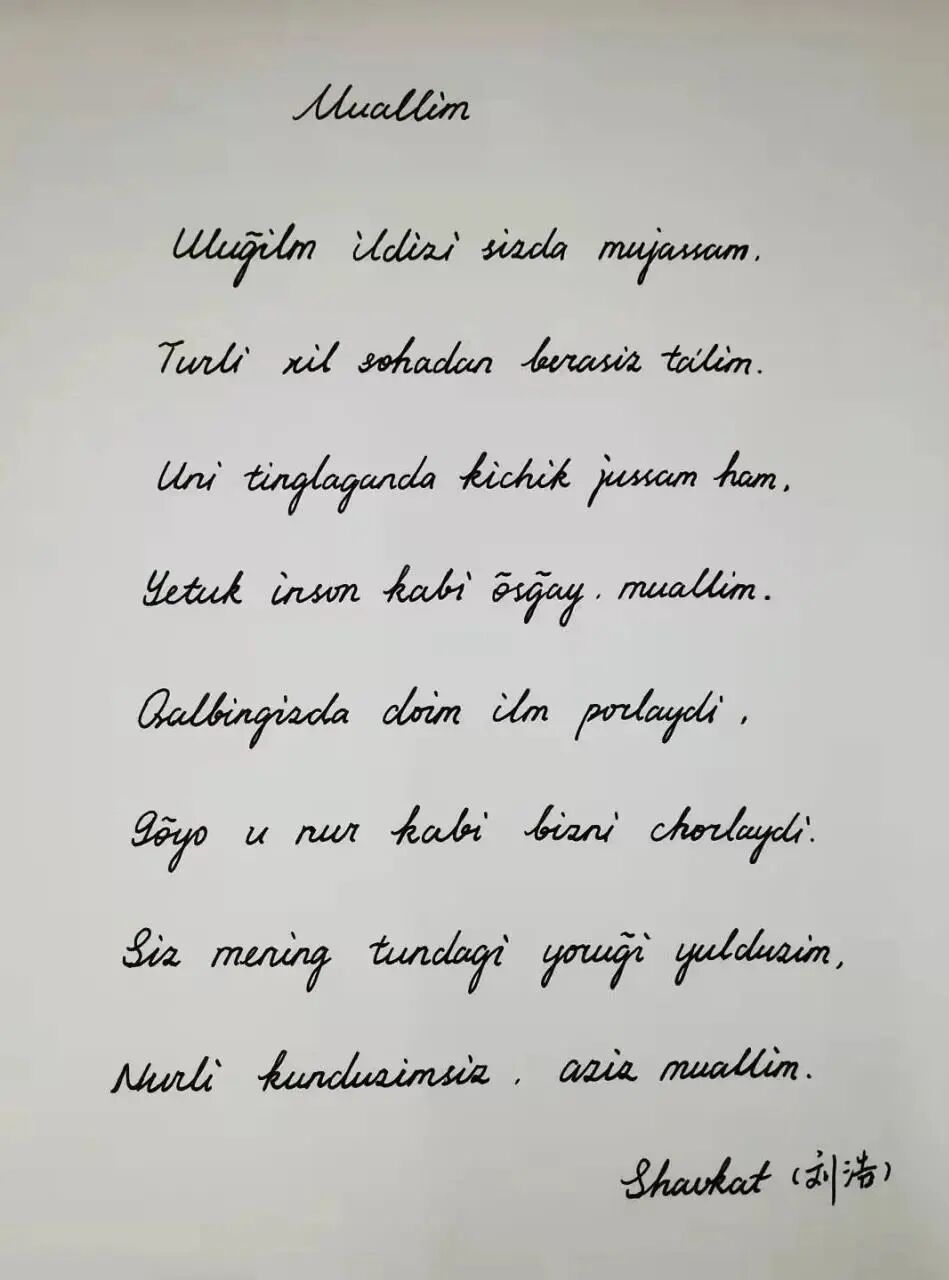 Muallim
Uluğ̃ilm ildizi sizda mujassam.
Turli xil sohadan berasiz ta'lim.
Uni tinglaganda kichik jussam ham,
Yetuk inson kabi õsg̃ay, muallim.
Qalbingizda doim ilm porlaydi,
Gõyo u nur kabi bizni chorlaydi.
Siz mening tundagi yorug̃i yulduzim,
Nurli kunduzimsiz, aziz muallim.
Shavkat (刘浩)